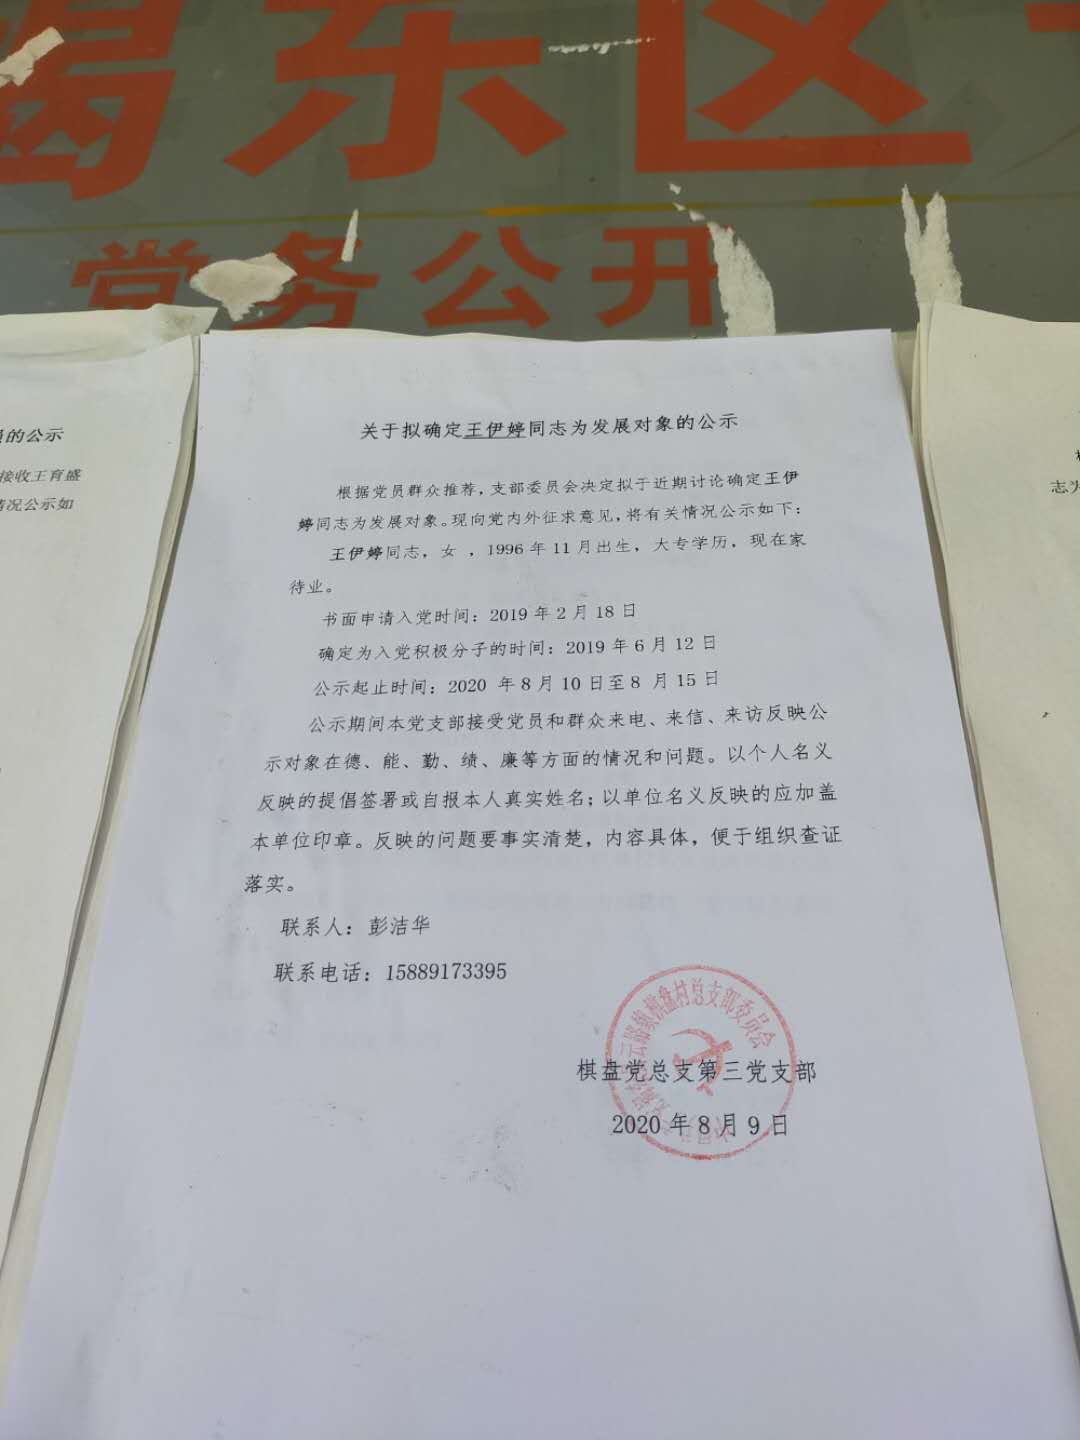 揭东区
党务公开
的公示
接收王育盛
情况公示如
关于拟确定王伊婷同志为发展对象的公示
根据党员群众推荐，支部委员会决定拟于近期讨论确定王伊
婷同志为发展对象。现向党内外征求意见，将有关情况公示如下：
王伊婷同志，女 ，1996 年 11 月出生，大专学历，现在家
待业。
书面申请入党时间：2019 年 2 月 18 日
确定为入党积极分子的时间：2019 年 6 月 12 日
公示起止时间：2020 年 8 月 10 日至 8 月 15 日
公示期间本党支部接受党员和群众来电、来信、来访反映公
示对象在德、能、勤、绩、廉等方面的情况和问题。以个人名义
反映的提倡签署或自报本人真实姓名；以单位名义反映的应加盖
本单位印章。反映的问题要事实清楚，内容具体，便于组织查证
落实。
联系人：彭洁华
联系电话：15889173395
云路镇棋盘村总支部委员会
棋盘党总支第三党支部
2020 年 8 月 9 日
志为